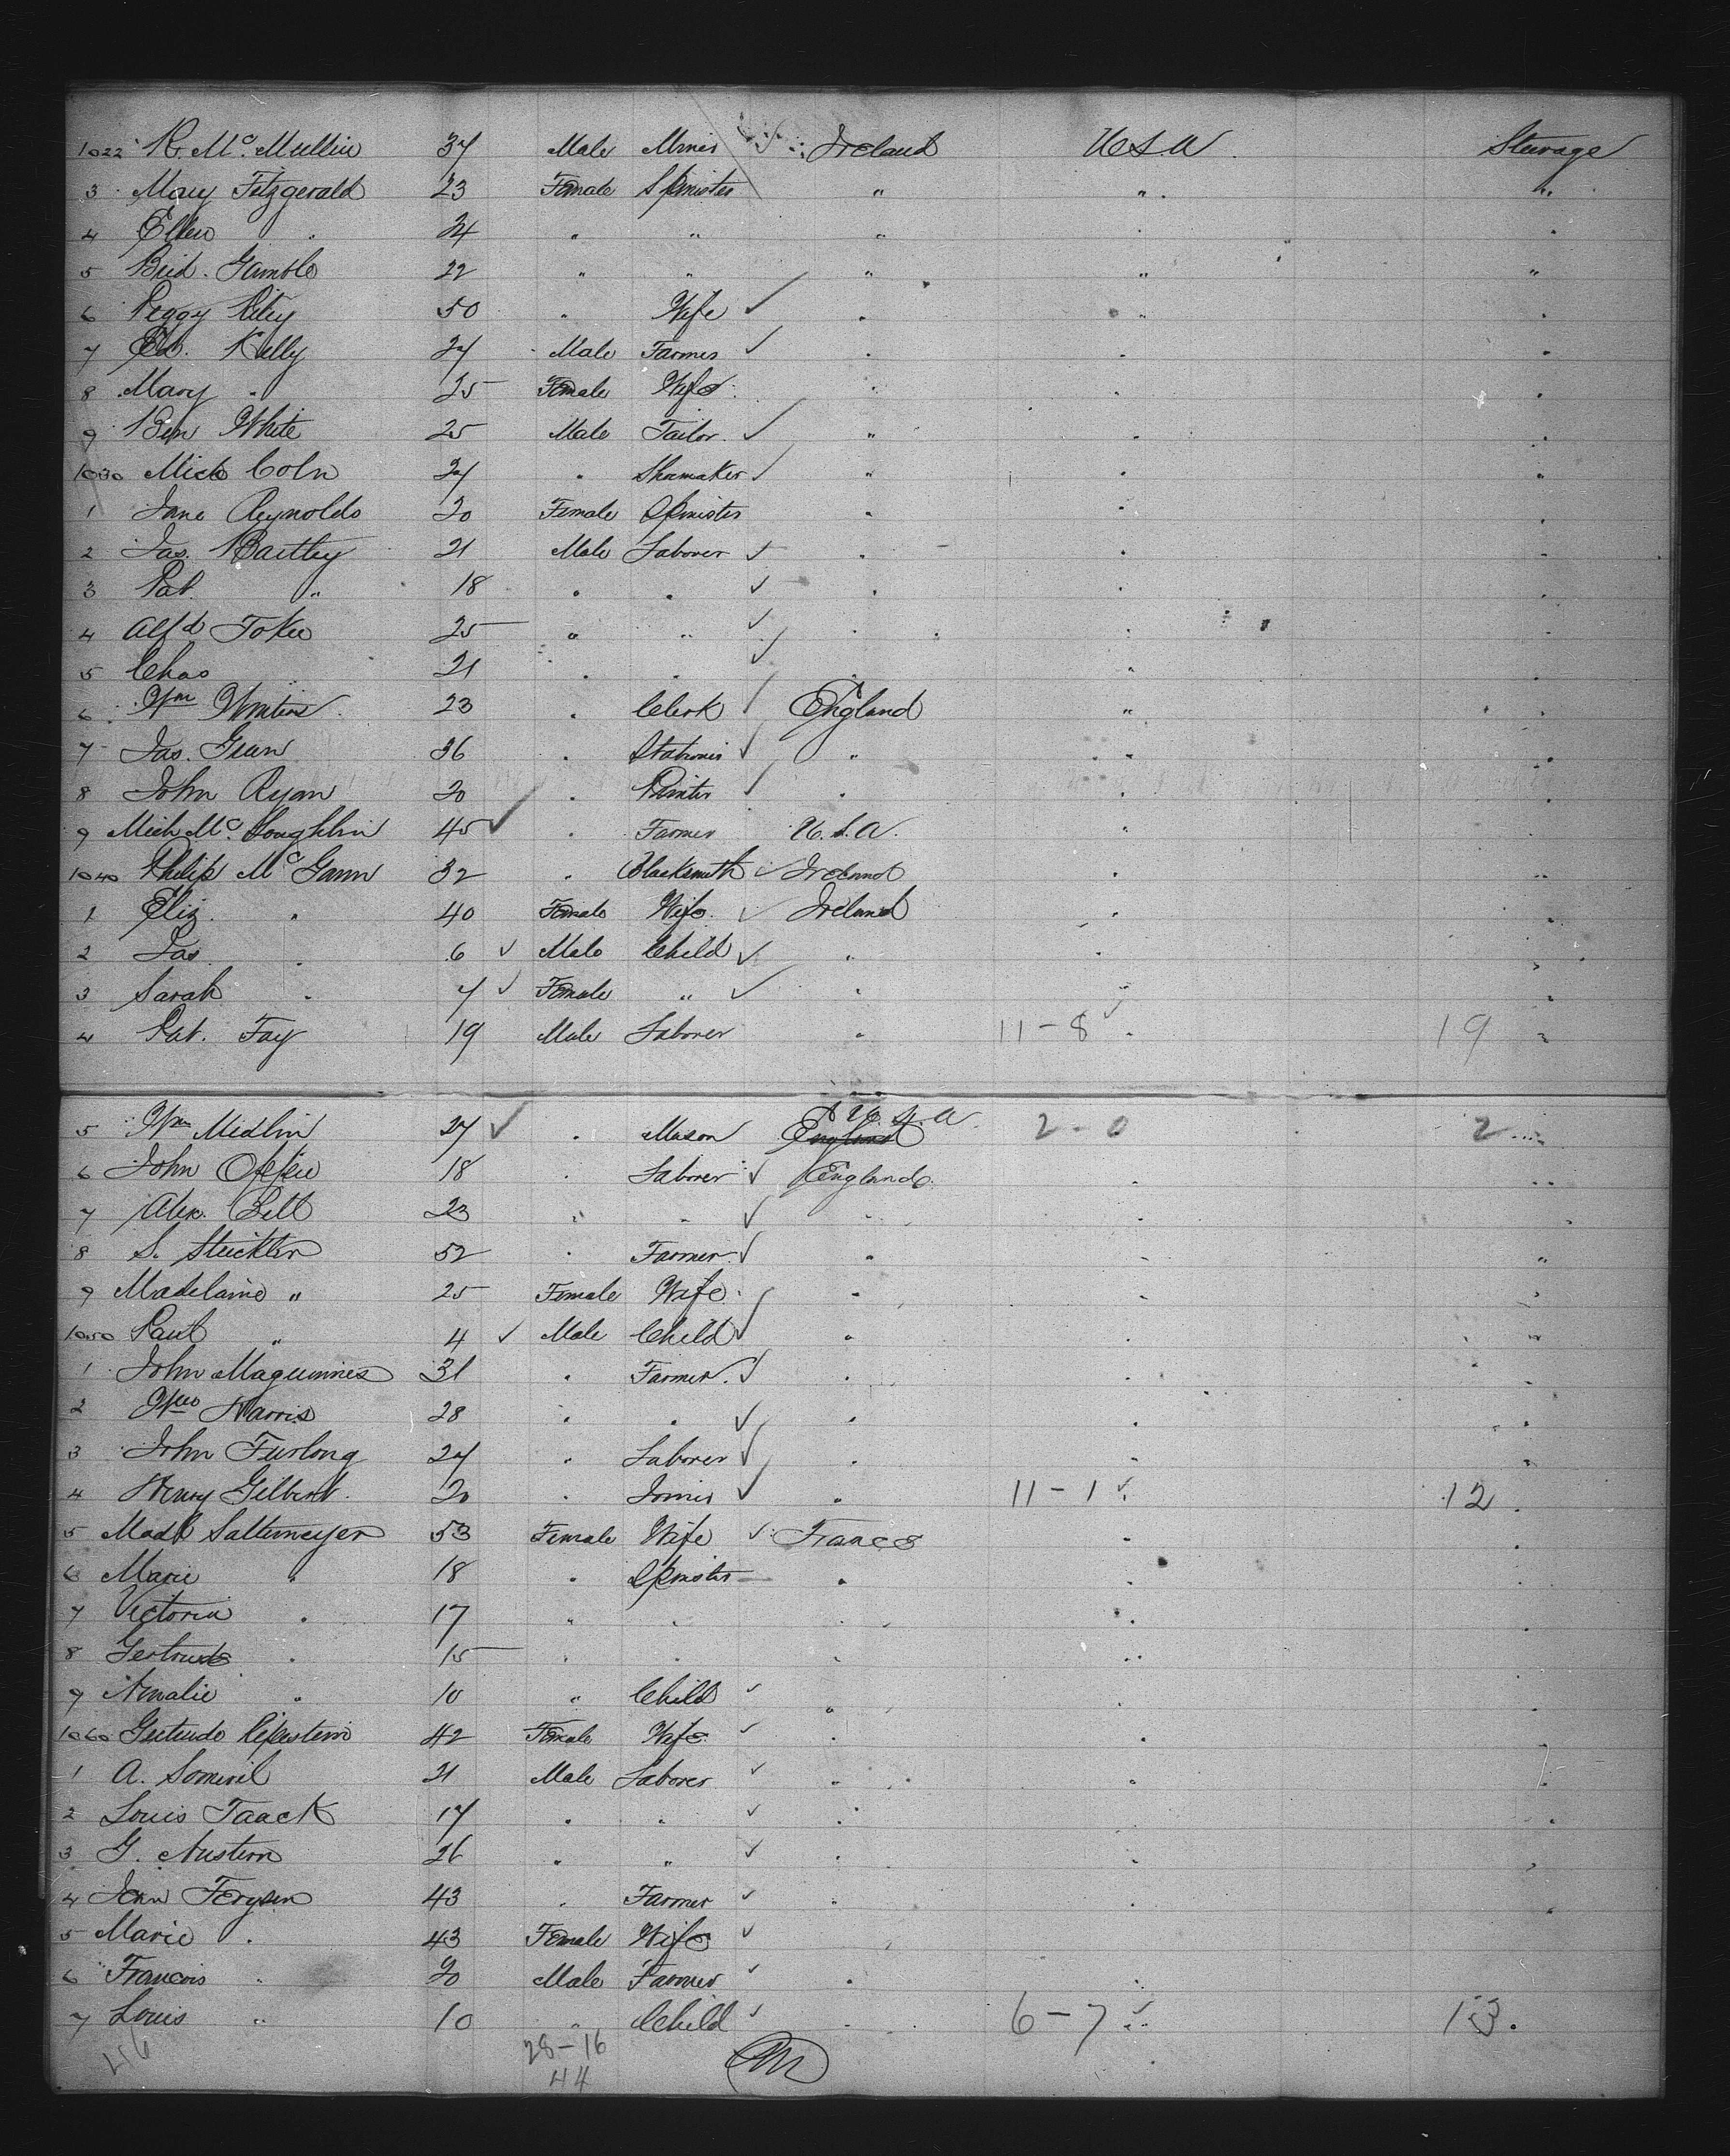 1022 R. Mc. Mullin 37 Male Miner ✓ Ireland U.S.A. Steerage
3 Mary Fitzgerald 23 Female Spinster " " "
4 Ellen " 24 " " " " "
5 Brid. Gamble 22 " " " " "
6 Peggy Riley 50 " Wife ✓ " " "
7 Ed. Kelly 27 Male Farmer ✓ " " "
8 Mary " 25 Female Wife " " "
9 Ben White 25 Male Tailor ✓ " " "
1030 Mich Coln 27 " Shumaker ✓ " " "
1 Jane Reynolds 20 Female Spinster " " "
2 Jas. Bartley 21 Male Laborer ✓ " " "
3 Pat. " 18 " " ✓ " " "
4 Alfd 25 " " ✓ " " "
5 Chas " 21 " " ✓ " " "
6 Wm 23 " Clerk ✓ England " "
7 Jas. 36 " Stationer ✓ " " "
8 John Ryan 20 " ✓ " " "
9 Mich Mc. Loughlin 45 ✓ " Farmer U.S.A. " "
1040 Philip Mc Gann 32 " Blacksmith ✓ Ireland " "
1 Eliz. " 40 Female Wife ✓ Ireland " "
2 Jas " 6 ✓ Male Child ✓ " " "
3 Sarah " 7 ✓ Female " ✓ " " "
4 Pat. Fay 19 Male Laborer " 11-8 ✓ " 19 "
5 Wm Medlin 27 ✓ " Mason England U.S.A. 2-0 2 "
6 John 18 " Laborer ✓ England " "
7 Alex. Bell 23 " " ✓ " " "
8 S. Stuckler 52 " Farmer ✓ " " "
9 Madelaine " 25 Female Wife " " "
1050 Paul " 4 ✓ Male Child ✓ " " "
1 John Maguinnes 31 " Farmer ✓ " " "
2 Harris 28 " " ✓ " " "
3 John Furlong 27 " Laborer ✓ " " "
4 Henry Gilbert 20 " Joiner ✓ " 11-1 ✓ 12 "
5 Madl Saltemeyer 53 Female Wife ✓ France " "
6 Marie " 18 " Spinster " " "
7 Victoria " 17 " " " " "
8 Gertrude " 15 " " " " "
9 Amalie " 10 " Child ✓ " " "
1060 Gertrude 42 Female Wife ✓ " " "
1 A. Somevil 21 Male Laborer ✓ " " "
2 Louis Taack 17 " " ✓ " " "
3 G. Austern 26 " " ✓ " " "
4 Jean Ferysen 43 " Farmer ✓ " " "
5 Marie " 43 Female Wife ✓ " " "
6 Francois " 20 Male Farmer ✓ " " "
7 Louis " 10 " Child ✓ " 6-7 ✓ 13 "
28-16
44